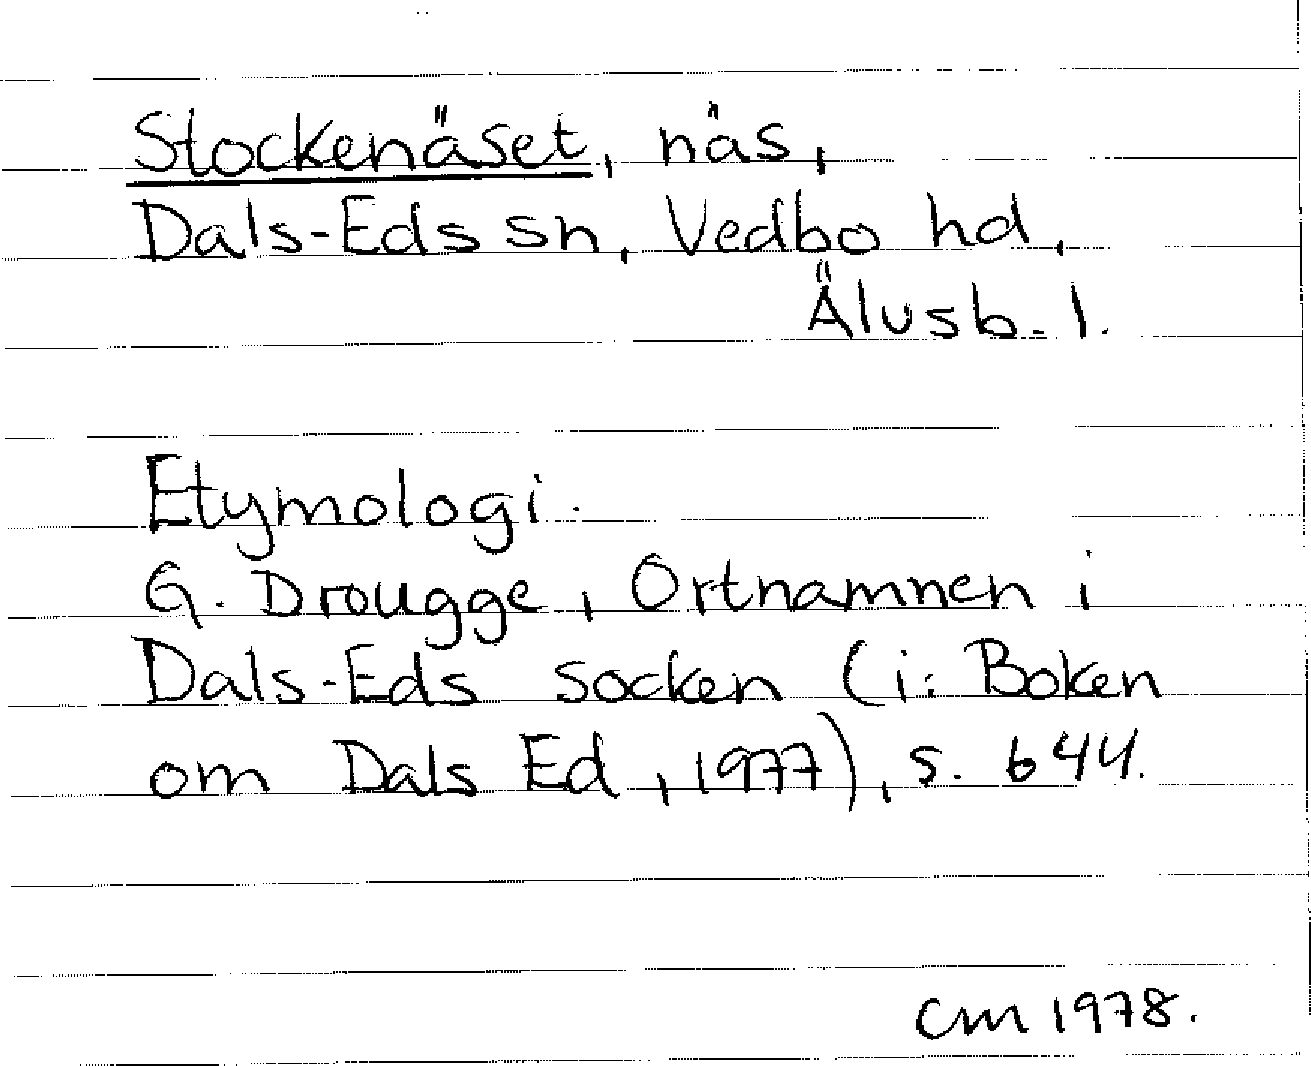 Stockenäset, näs,
Dals-Eds sn, Vedbo hd,
Älvsb. l.
Etymologi.
G. Drougge, Ortnamnen i
Dals-Eds socken (i: Boken
om Dals Ed, 1977), s. 644.
CM 1978.